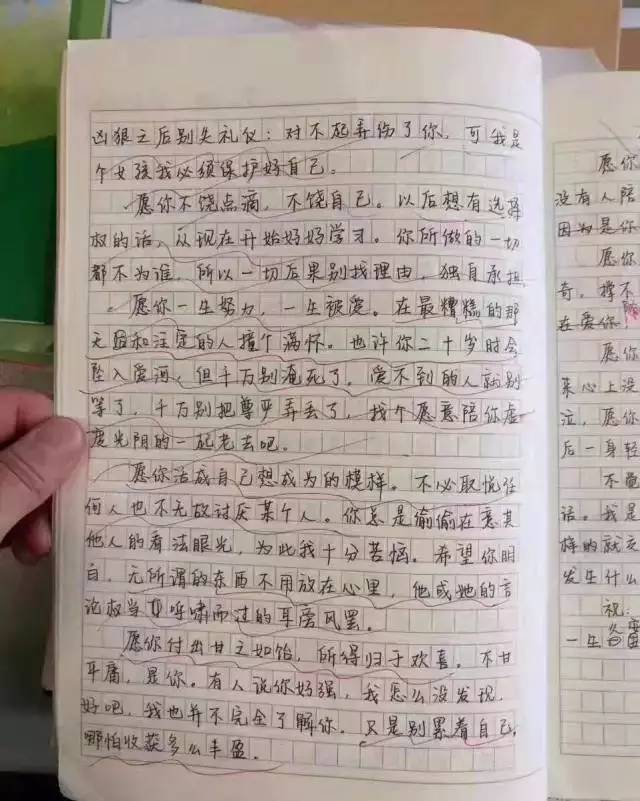 凶狠之后别失礼仪：对不起弄伤了你，可我是
个女孩我必须保护好自己。
愿你不饶点滴，不饶自己。以后想有选择
权的话，从现在开始好好学习。你所做的一切
都不为谁，所以一切后果别找理由，独自承担
愿你一生努力，一生被爱。在最糟糕的那
天题和注定的人撞个满怀。也许你二十岁时会
坠入爱河，但千万别淹死了，爱不到的人就别
等了，千万别把尊严弄丢了，找个愿意陪你虚
度光阴的一起老去吧。
愿你活成自己想成为的模样。不必取悦任
何人也不无故讨厌某个人。你总是偷偷在意其
他人的看法眼光，为此我十分苦恼。希望你明
白，无所谓的东西不用放在心里，他或她的言
论权当呼啸而过的耳旁风罢。
愿你付出甘之如饴，所得归于欢喜。不甘
平庸，是你。有人说你好强，我怎么没发现，
好吧，我也并不完全了解你。只是别累着自己，
哪怕收获多么丰盈。
愿你
没有人陪
因为是你
愿你
奇，撑不
在爱你
愿你
某心上没
泣，愿你
后一身轻
不
话。我是
样的就
发生什么
祝：
一生